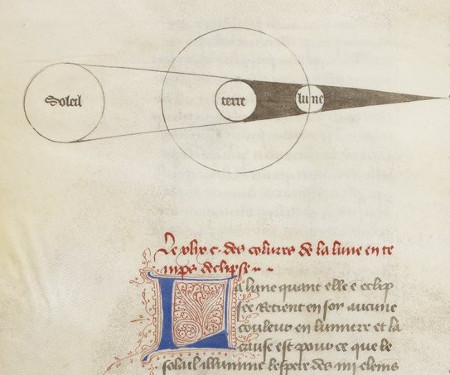 Soleil
terre
lune
Le xlix c. des colurres de la lune en te
mps declipse
La lune quant elle e eclip
see Retient en soy aucune
couleur en lumiere et la
cause est pour ce que le
soleil illumine lespere des iiii elemes